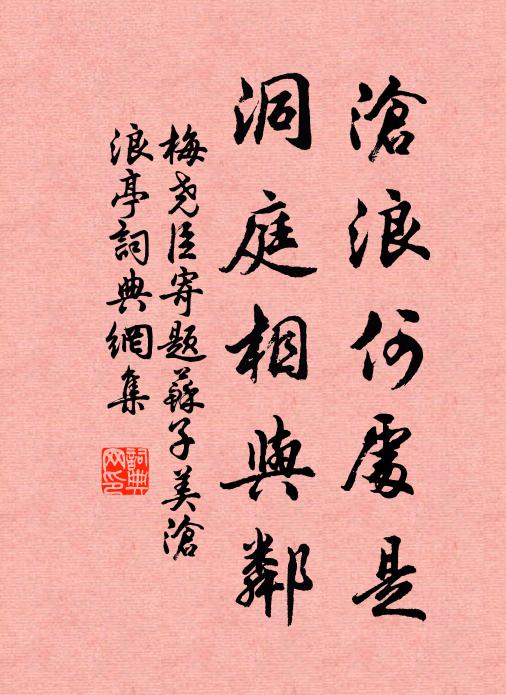 滄浪何處是
洞庭相與鄰
梅堯臣寄題蘇子美滄
浪亭詞典網集
詞典
网印